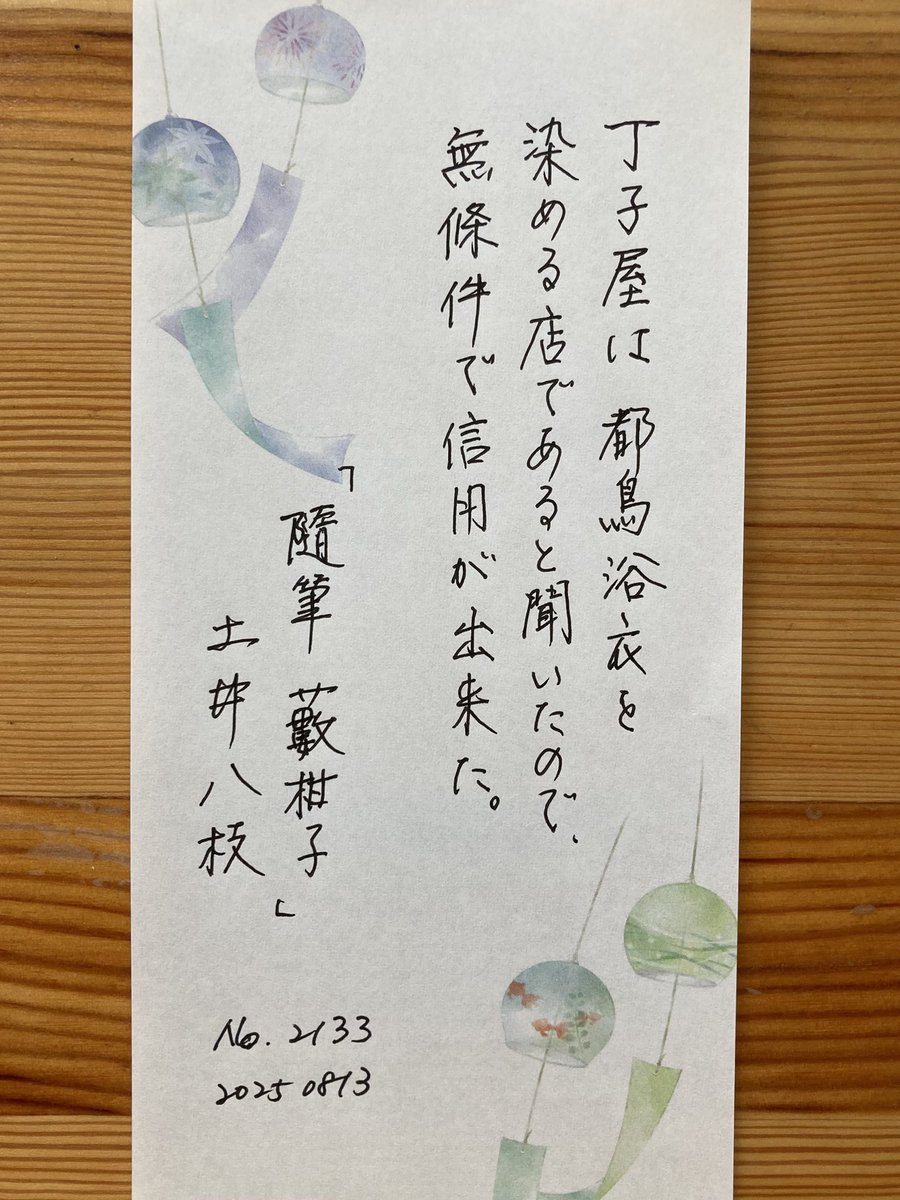 丁子屋は 都鳥浴衣を
染める店であると聞いたので、
無條件で信用が出来た。
「隨筆 藪柑子」
土井八枝
No. 2133
20250813